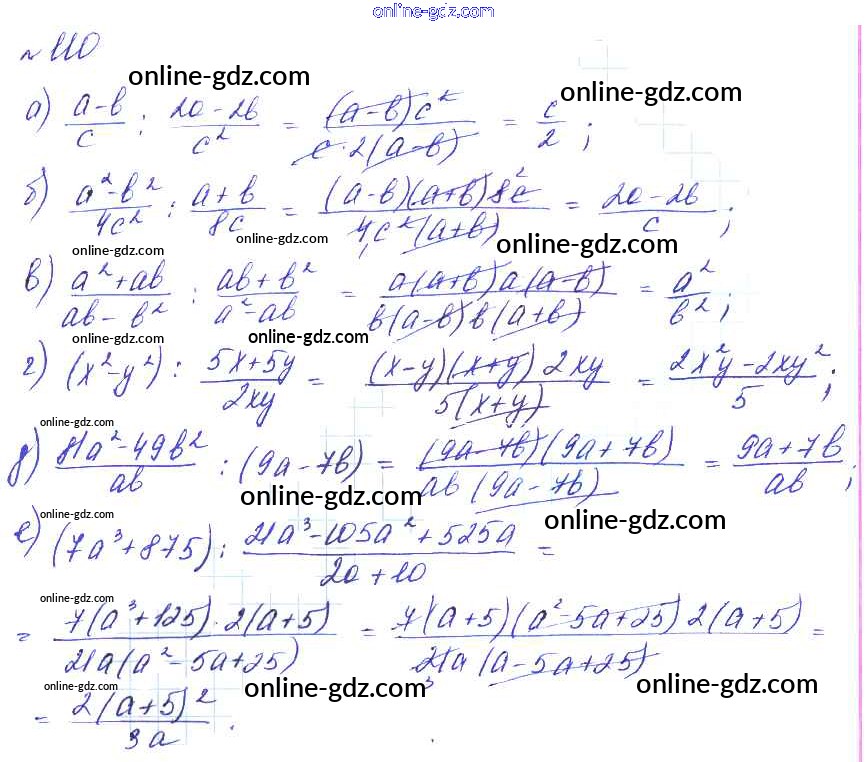 online-gdz.com
№ 110
online-gdz.com
online-gdz.com
а) (a-b)/c : (2a-2b)/c² = ((a-b)c²)/(c·2(a-b)) = c/2;
б) (a²-b²)/4c² : (a+b)/8c = ((a-b)(a+b)8c)/(4c²(a+b)) = (2a-2b)/c;
online-gdz.com
online-gdz.com
online-gdz.com
в) (a²+ab)/(ab-b²) : (ab+b²)/(a²-ab) = (a(a+b)a(a-b))/(b(a-b)b(a+b)) = a²/b²;
online-gdz.com
online-gdz.com
г) (x²-y²) : (5x+5y)/2xy = ((x-y)(x+y)2xy)/(5(x+y)) = (2x²y-2xy²)/5;
online-gdz.com
д) (81a²-49b²)/ab : (9a-7b) = ((9a-7b)(9a+7b))/(ab(9a-7b)) = (9a+7b)/ab;
online-gdz.com
online-gdz.com
online-gdz.com
е) (7a³+875) : (21a³-105a²+525a)/(2a+10) =
online-gdz.com
= (7(a³+125)·2(a+5))/(21a(a²-5a+25)) = (7(a+5)(a²-5a+25)2(a+5))/(21a(a-5a+25)) =
online-gdz.com
online-gdz.com
online-gdz.com
= 2(a+5)²/3a.